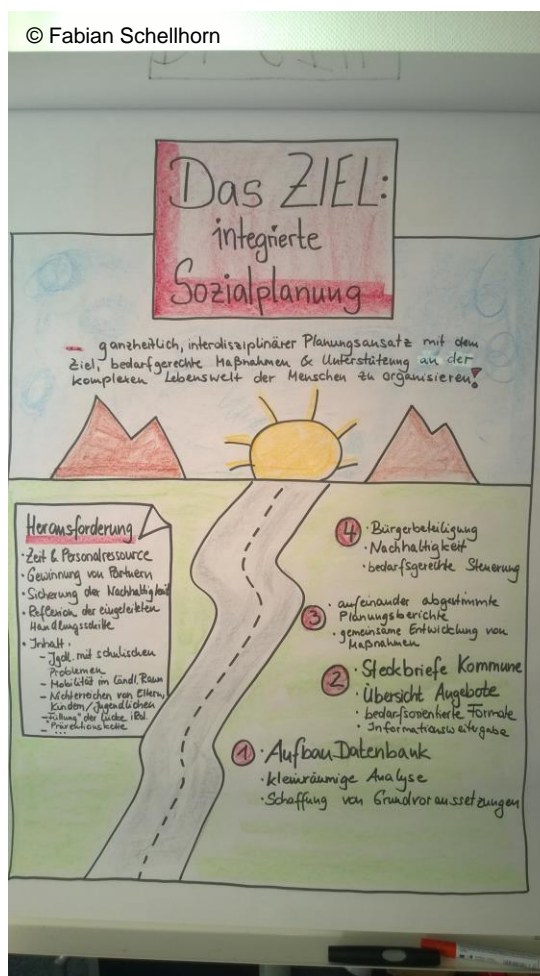 © Fabian Schellhorn
Das ZIEL:
integrierte
Sozialplanung
- ganzheitlich, interdisziplinärer Planungsansatz mit dem
Ziel, bedarfgerechte Maßnahmen & Unterstützung an der
komplexen Lebenswelt der Menschen zu organisieren!
Herausforderung
· Zeit & Personalressource
· Gewinnung von Partnern
· Sicherung der Nachhaltigkeit
· Reflexion der eingeleiteten
Handlungsschritte
· Inhalt:
- Jgdl. mit schulischen
Problemen
- Mobilität im ländl. Raum
- Nichterreichen von Eltern,
Kindern/Jugendlichen
- "Füllung" der Lücke i.Bd.
"Präventionskette"
- ...
4 · Bürgerbeteiligung
· Nachhaltigkeit
· bedarfsgerechte Steuerung
3 · aufeinander abgestimmte
Planungsberichte
· gemeinsame Entwicklung von
Maßnahmen
2 · Steckbriefe Kommune
· Übersicht Angebote
· bedarfsorientierte Formate
· Informationsweitergabe
1 · Aufbau Datenbank
· kleinräumige Analyse
· Schaffung von Grundvoraussetzungen